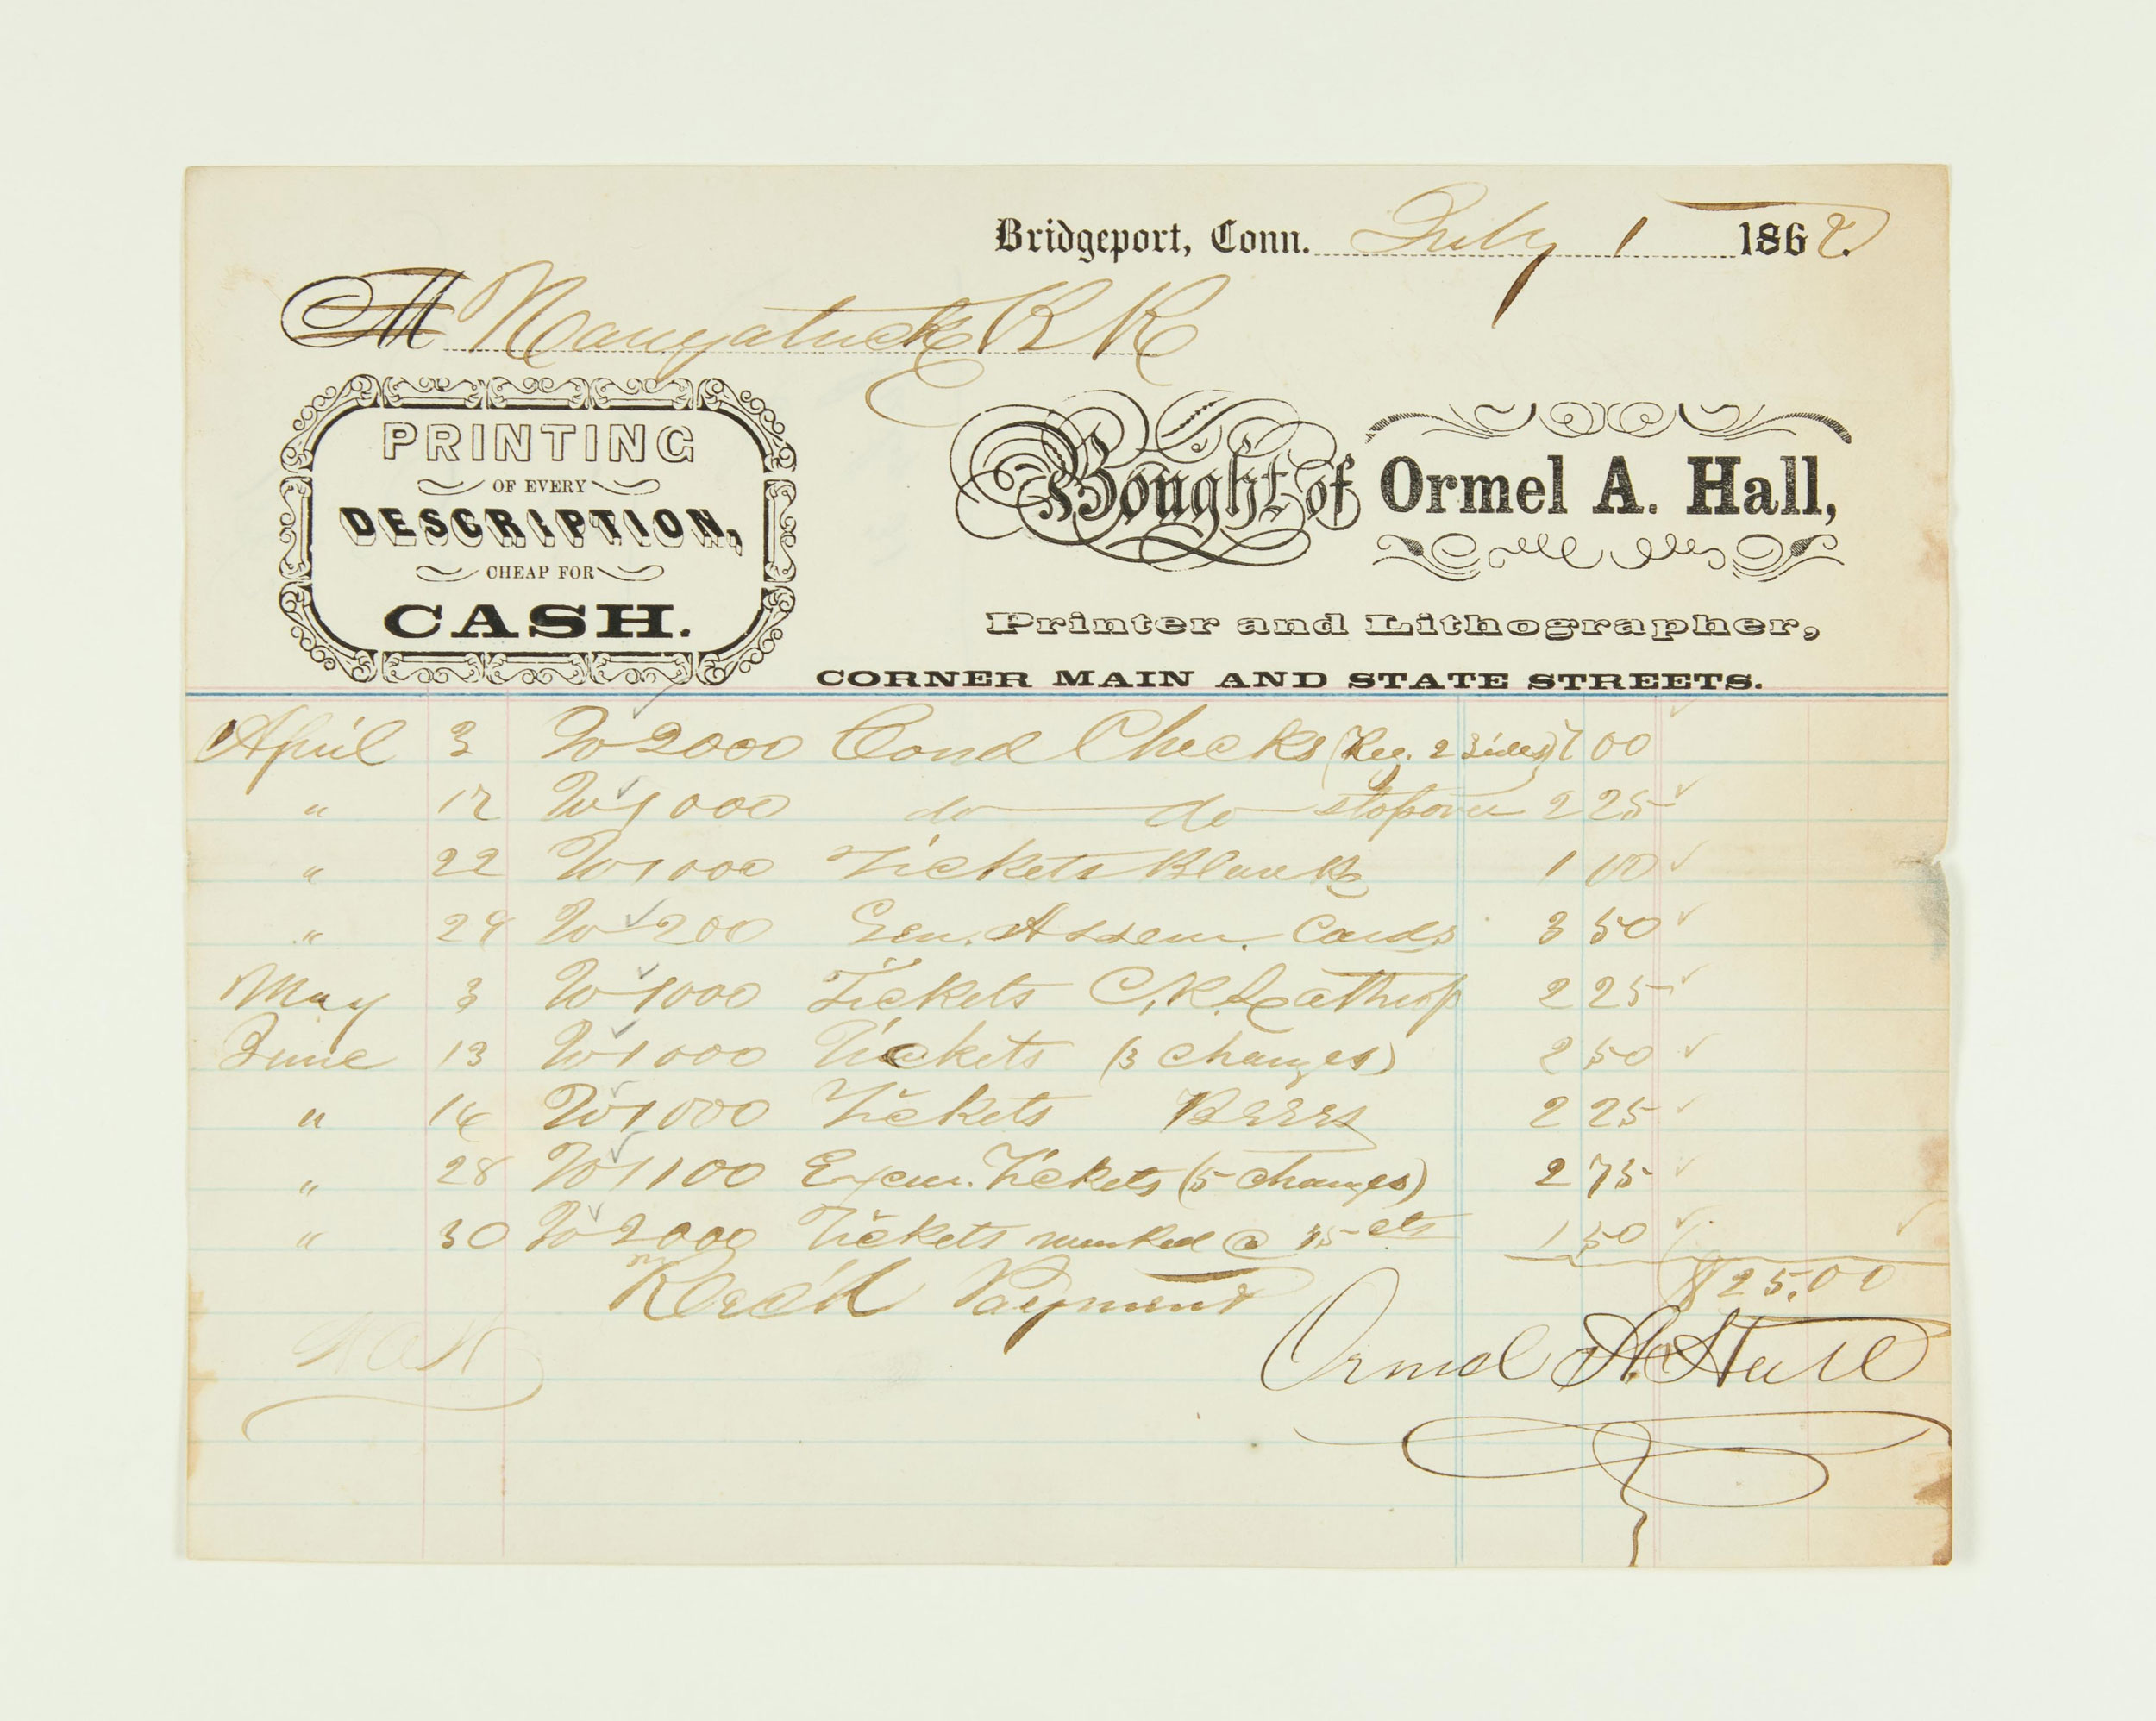 Bridgeport, Conn. July 1 1862.
M Naugatuck R R
PRINTING
OF EVERY
DESCRIPTION,
CHEAP FOR
CASH.
Bought of Ormel A. Hall,
Printer and Lithographer,
CORNER MAIN AND STATE STREETS.
April 3 To 2000 Cond Checks (Reg. 2 Sides) 7 00
" 12 To 1000 do do stopover 2 25
" 22 To 1000 Tickets Blank 1 00
" 29 To 200 Gen. Assem. Cards 3 50
May 3 To 1000 Tickets C, R. Lathrop 2 25
June 13 To 1000 Tickets (3 changes) 2 50
" 14 To 1000 Tickets 2 25
" 28 To 1100 Excur. Tickets (5 changes) 2 75
" 30 To 2000 Tickets numbed @ cts 1 50
$25.00
Rec'd Payment
Ormel A. Hall